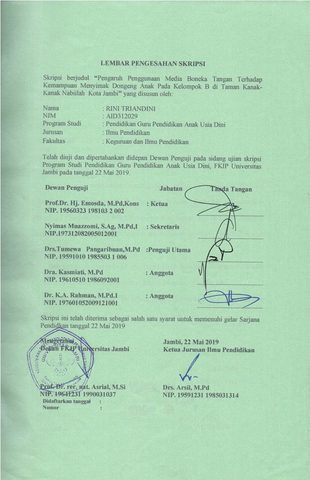 LEMBAR PENGESAHAN SKRIPSI
Skripsi berjudul "Pengaruh Penggunaan Media Boneka Tangan Terhadap
Kemampuan Menyimak Dongeng Anak Pada Kelompok B di Taman Kanak-
Kanak Nabiilah Kota Jambi" yang disusun oleh:
Nama : RINI TRIANDINI
NIM : AID312029
Program Studi : Pendidikan Guru Pendidikan Anak Usia Dini
Jurusan : Ilmu Pendidikan
Fakultas : Keguruan dan Ilmu Pendidikan
Telah diuji dan dipertahankan didepan Dewan Penguji pada sidang ujian skripsi
Program Studi Pendidikan Guru Pendidikan Anak Usia Dini, FKIP Universitas
Jambi pada tanggal 22 Mei 2019
Dewan Penguji Jabatan Tanda Tangan
Prof.Dr. Hj, Emosda, M.Pd,Kons : Ketua
NIP. 19560323 198103 2 002
Nyimas Muazzomi, S.Ag, M.Pd.I : Sekretaris
NIP.197312082005012001
Drs.Tumewa Pangaribuan,M.Pd :Penguji Utama
NIP. 19591010 1985503 1 006
Dra. Kasmiati, M.Pd : Anggota
NIP. 19610510 1986092001
Dr. K.A. Rahman, M.Pd.I : Anggota
NIP. 197601052009121001
Skripsi ini telah diterima sebagai salah satu syarat untuk memenuhi gelar Sarjana
Pendidkan tanggal 22 Mei 2019
Mengetahui, Jambi, 22 Mei 2019
Dekan FKIP Universitas Jambi Ketua Jurusan Ilmu Pendidikan
Prof. Dr. rer. nat. Asrial, M.Si Drs. Arsil, M.Pd
NIP. 19641231 1990031037 NIP. 19591231 1985031314
Didaftarkan tanggal :
Nomor :